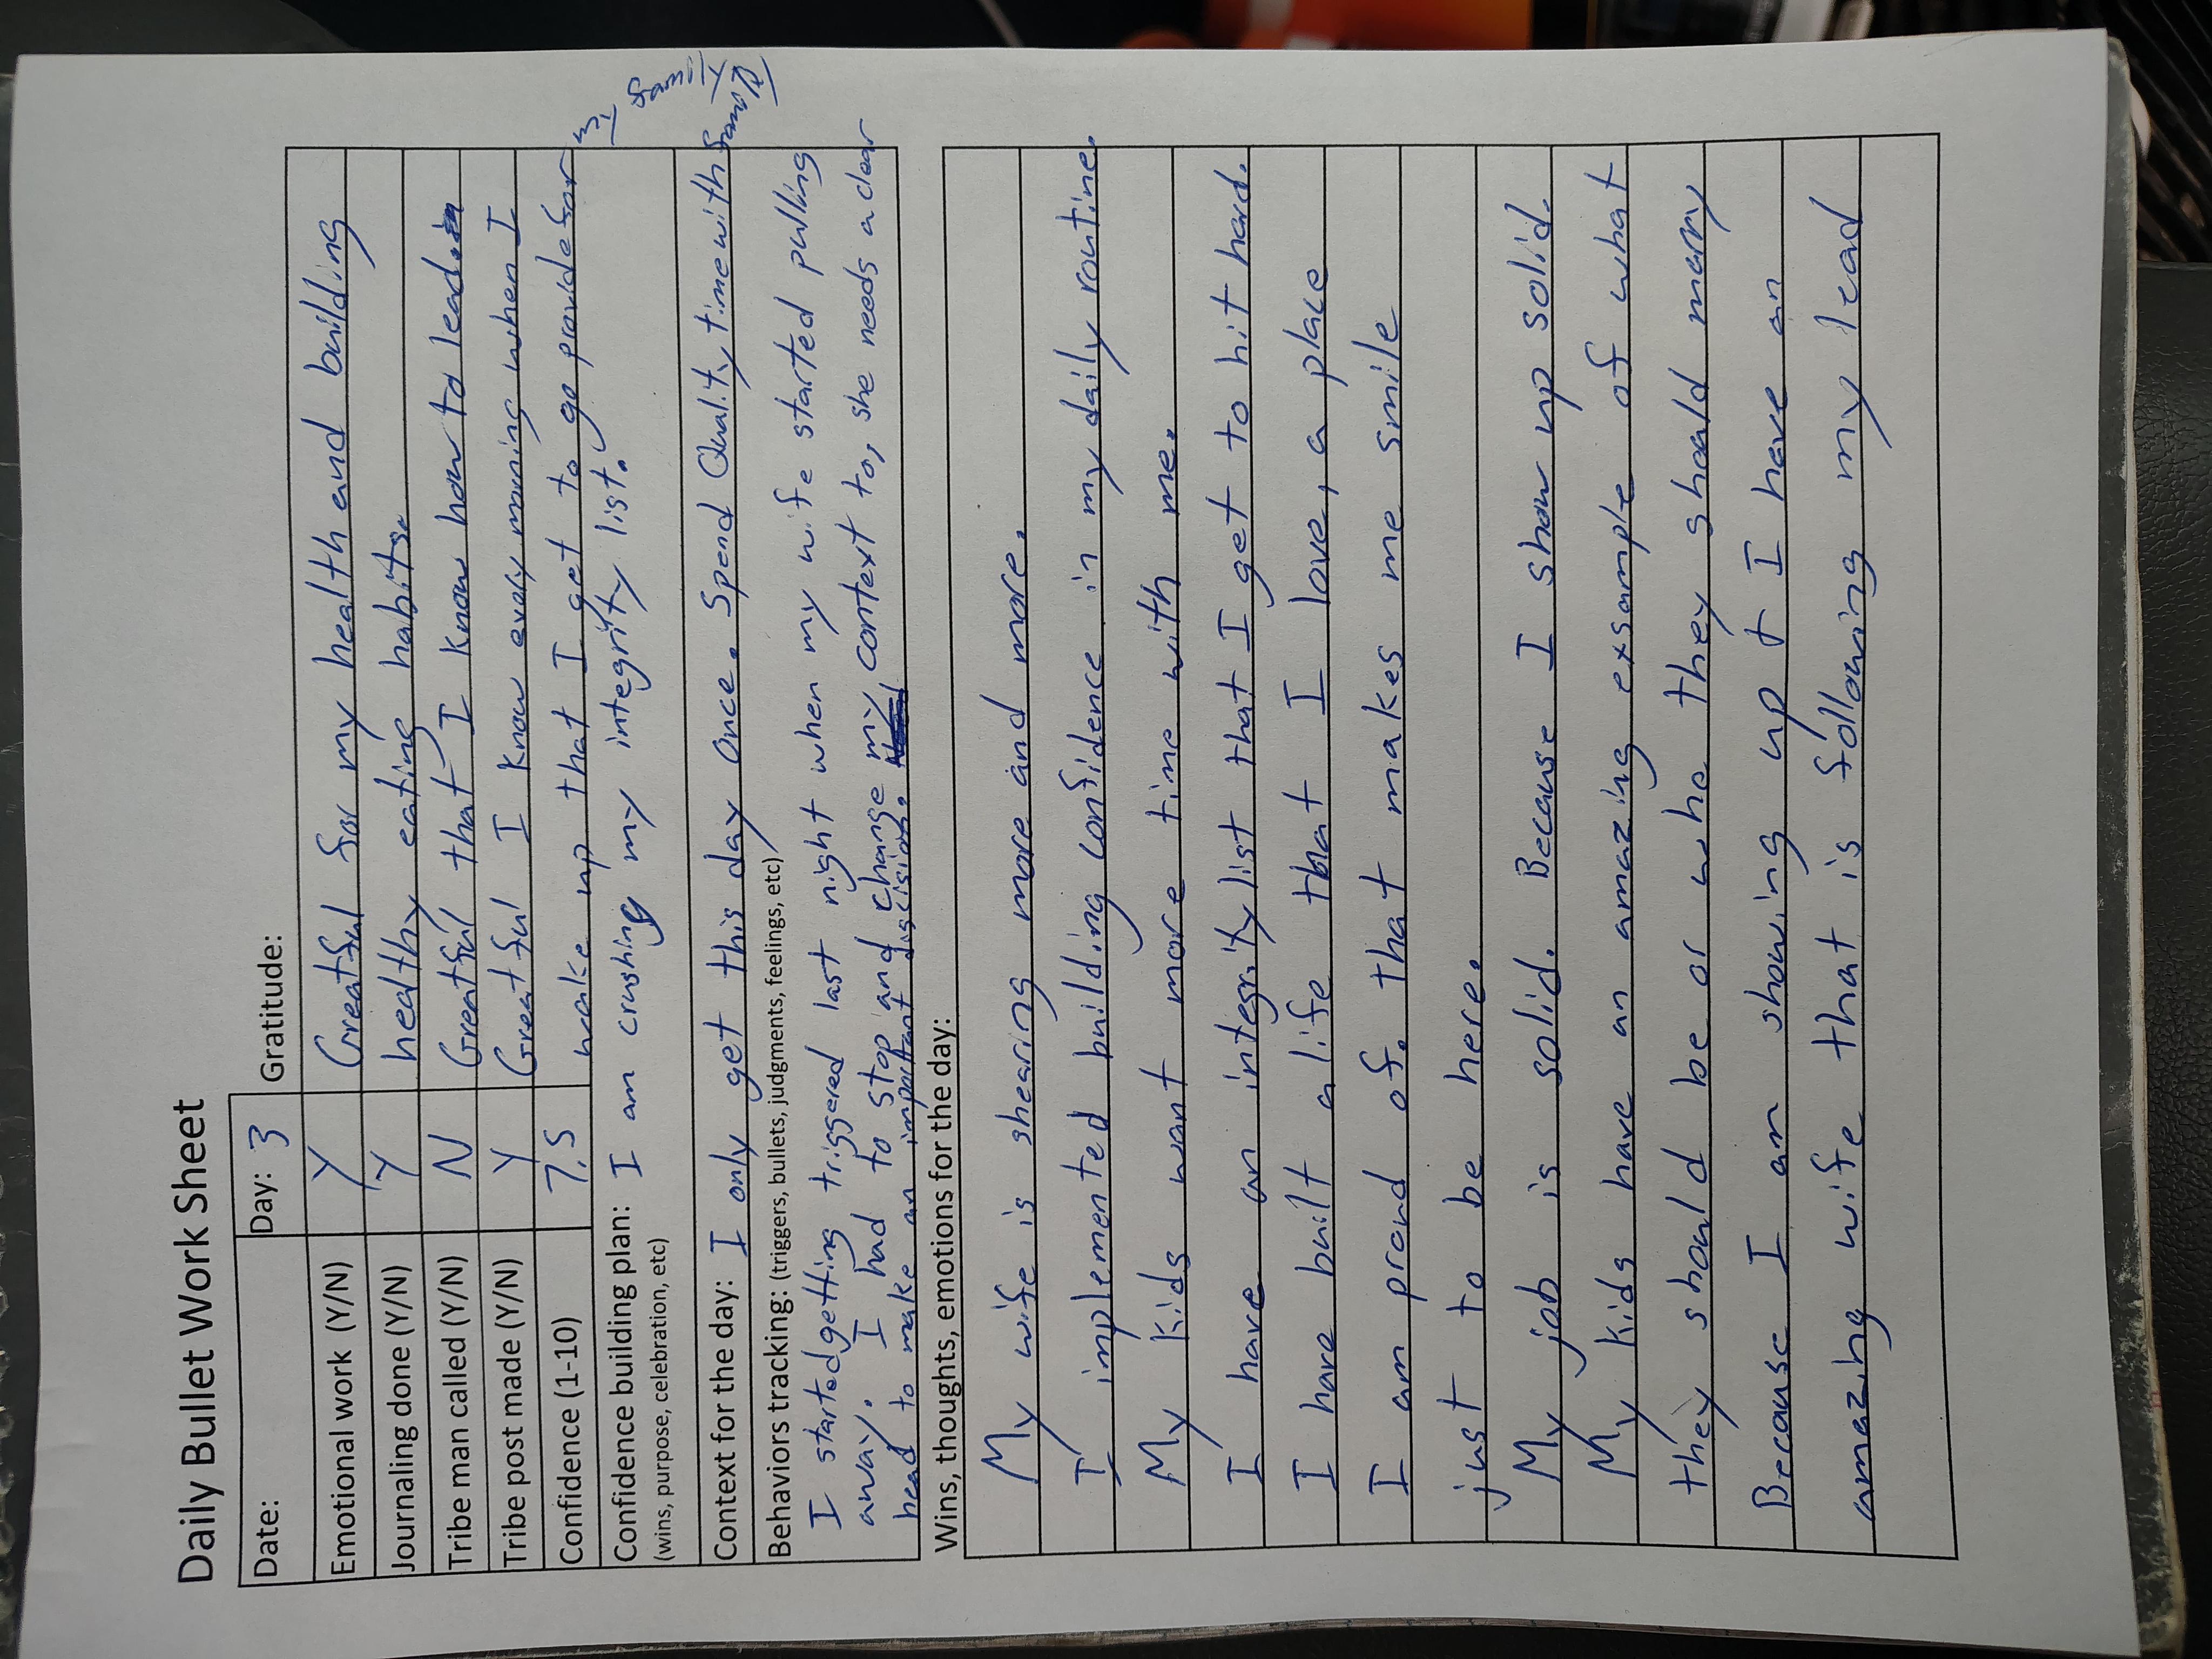 Daily Bullet Work Sheet
Date: Day: 3 Gratitude:
Emotional work (Y/N) Y Greatful for my health and building
Journaling done (Y/N) Y healthy eating habits.
Tribe man called (Y/N) N Greatful that I know how to lead.
Tribe post made (Y/N) Y Greatful I know every morning when I
Confidence (1-10) 7.5 wake up that I get to go provide for my family
Confidence building plan: I am crushing my integrity list.
(wins, purpose, celebration, etc)
Context for the day: I only get this day once. Spend Quality time with family
Behaviors tracking: (triggers, bullets, judgments, feelings, etc)
I started getting triggered last night when my wife started pulling
away. I had to stop and change my context to, she needs a clear
head to make an important discision.
Wins, thoughts, emotions for the day:
My wife is shearing more and more.
I implemented building confidence in my daily routine.
My kids want more time with me.
I have an integrity list that I get to hit hard.
I have built a life that I love, a place
I am proud of. that makes me smile
just to be here.
My job is solid. Because I show up solid.
My kids have an amazing exsample of what
they should be or who they should marry
Because I am showing up & I have an
amazing wife that is following my lead